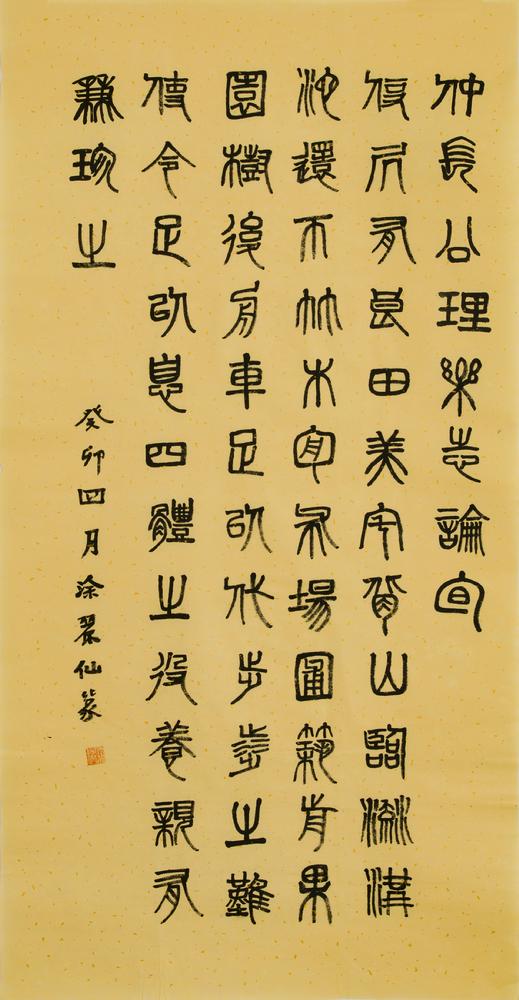 仲長公理樂志論曰
使凥有良田美宅背山臨流溝
池還帀竹木周布場圃築前果
園樹後舟車足以代步涉之難
使令足以息四體之役養親有
兼珍之
癸卯四月涂麗仙篆